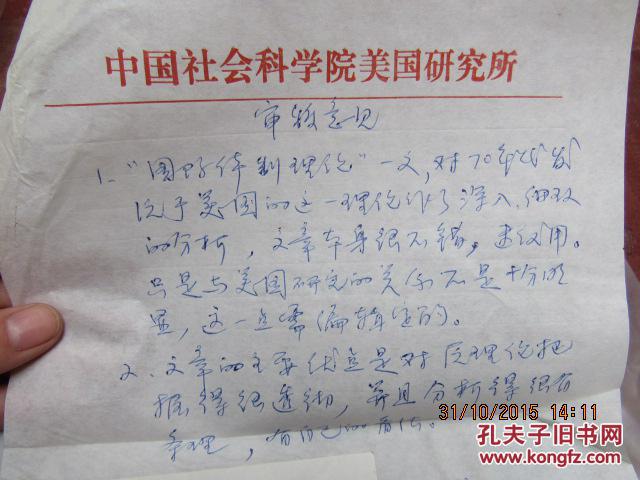 中国社会科学院美国研究所
审稿意见
1. "国际体制理论"一文，对70年代发
源于美国的这一理论作了深入、细致
的分析，文章本身很不错，建议用。
只是与美国研究的关系不是十分明
显，这一点需编辑定的。
2. 文章的主要优点是对该理论把
握得很透彻，并且分析得很有
条理，有自己的看法。
31/10/2015 14:11
孔夫子旧书网
www.kongfz.com